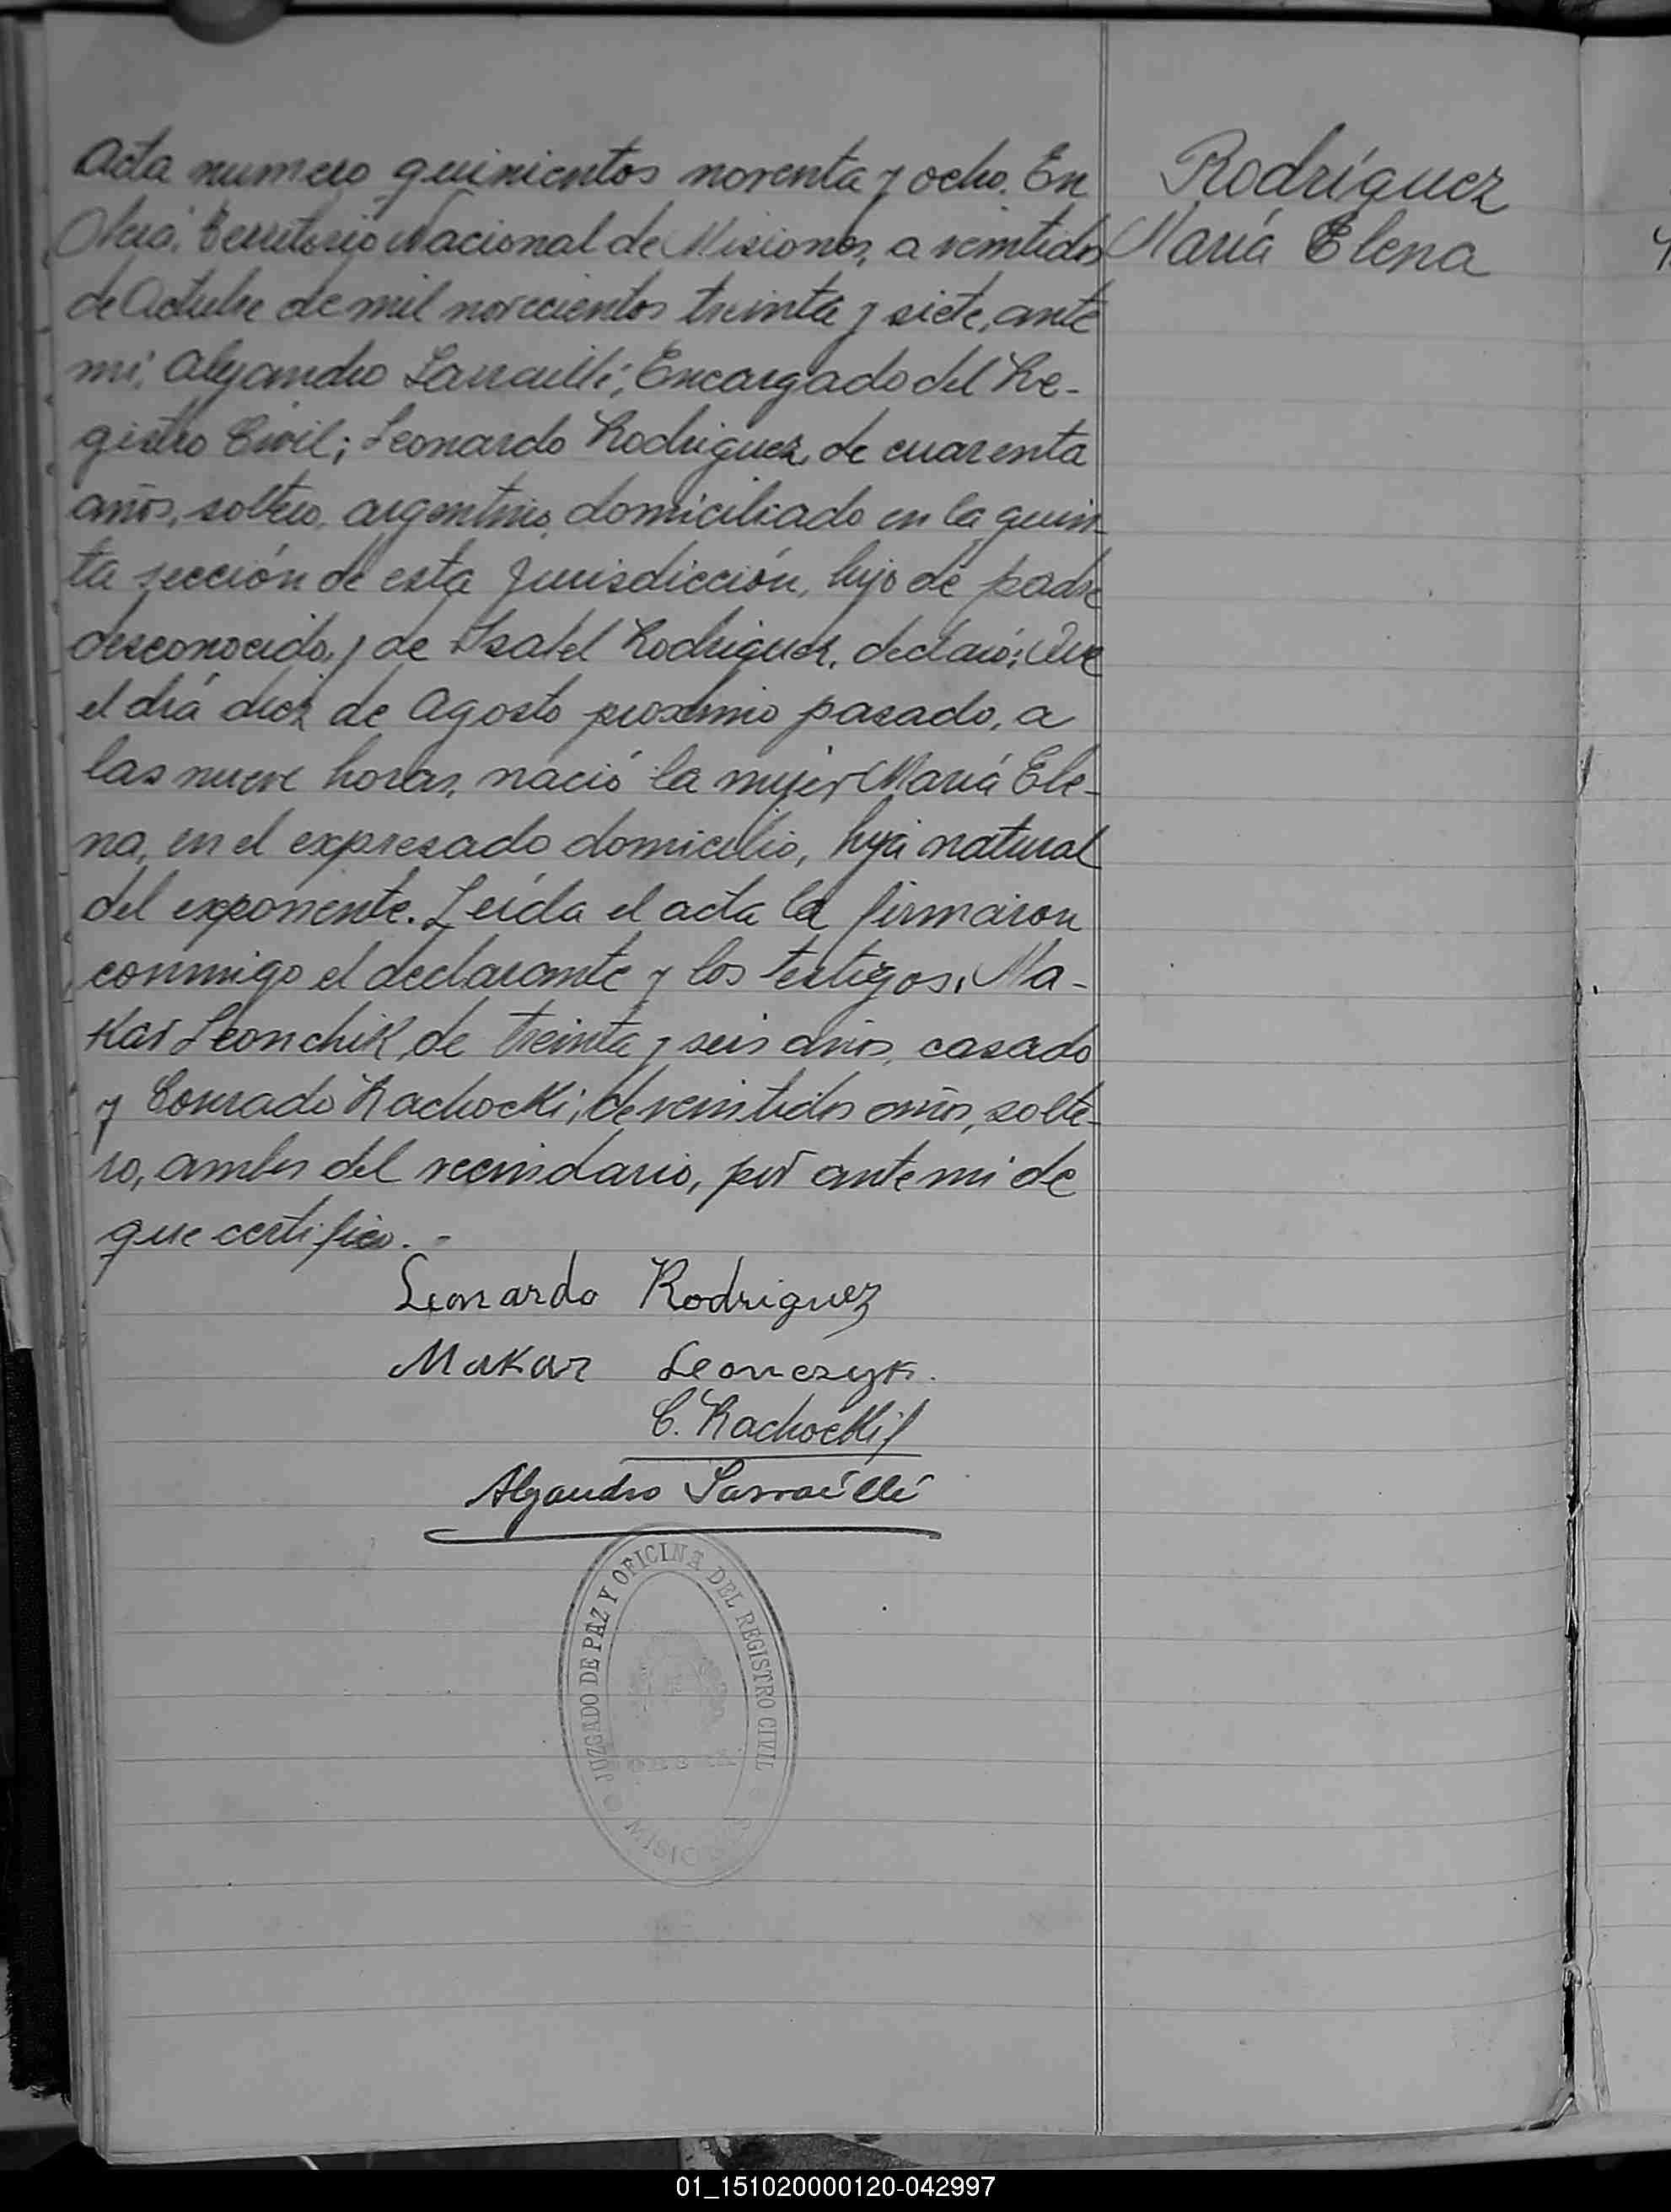 Acta numero quinientos noventa y ocho. En
Oberá, Territorio Nacional de Misiones, a veintidos
de Octubre de mil novecientos treinta y siete, ante
mi, Alejandro Sarrailli, Encargado del Re-
gistro Civil; Leonardo Rodriguez, de cuarenta
años, soltero, argentino, domiciliado en la quin-
ta sección de esta Jurisdicción, hijo de padre
desconocido, y de Isabel Rodriguez, declaró: Que
el día diez de Agosto proximo pasado, a
las nueve horas, nació la mujer María Ele-
na, en el expresado domicilio, hija natural
del exponente. Leída el acta la firmaron
conmigo el declarante y los testigos, Ma-
kar Leonchik, de treinta y seis años, casado
y Conrado Rachocki, de veintidos años, solte-
ro, ambos del vecindario, por ante mi de
que certifico. -
Leonardo Rodriguez
Makar Leonczyk.
C. Rachocki
Alejandro Sarrailli
JUZGADO DE PAZ Y OFICINA DEL REGISTRO CIVIL
Rodríguez
María Elena
01_151020000120-042997